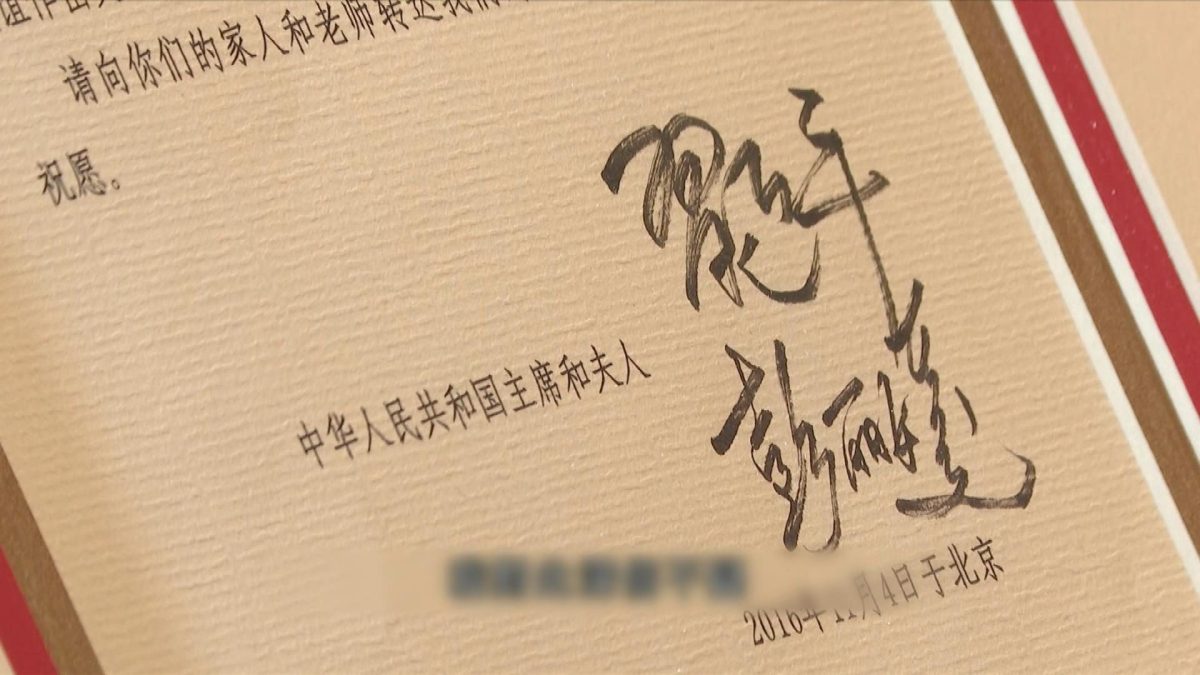 谊作出
请向你们的家人和老师转达我们
祝愿。
习近平
中华人民共和国主席和夫人
彭丽媛
2016年11月4日于北京